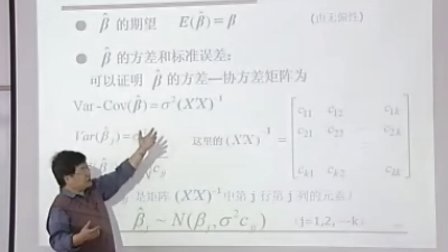 ● β̂ 的期望 E(β̂) = β (由无偏性)
● β̂ 的方差和标准误差:
可以证明 β̂ 的方差—协方差矩阵为
Var - Cov(β̂) = σ²(X'X)⁻¹
Var(β̂ⱼ) = σ
这里的 (X'X)⁻¹ = [c₁₁ c₁₂ c₁ₖ
c₂₁ c₂₂ c₂ₖ
cₖ₁ cₖ₂ cₖₖ]
是矩阵 (X'X)⁻¹ 中第 j 行第 j 列的元素
β̂ⱼ ~ N(βⱼ, σ²cⱼⱼ) (j=1,2, ···k)